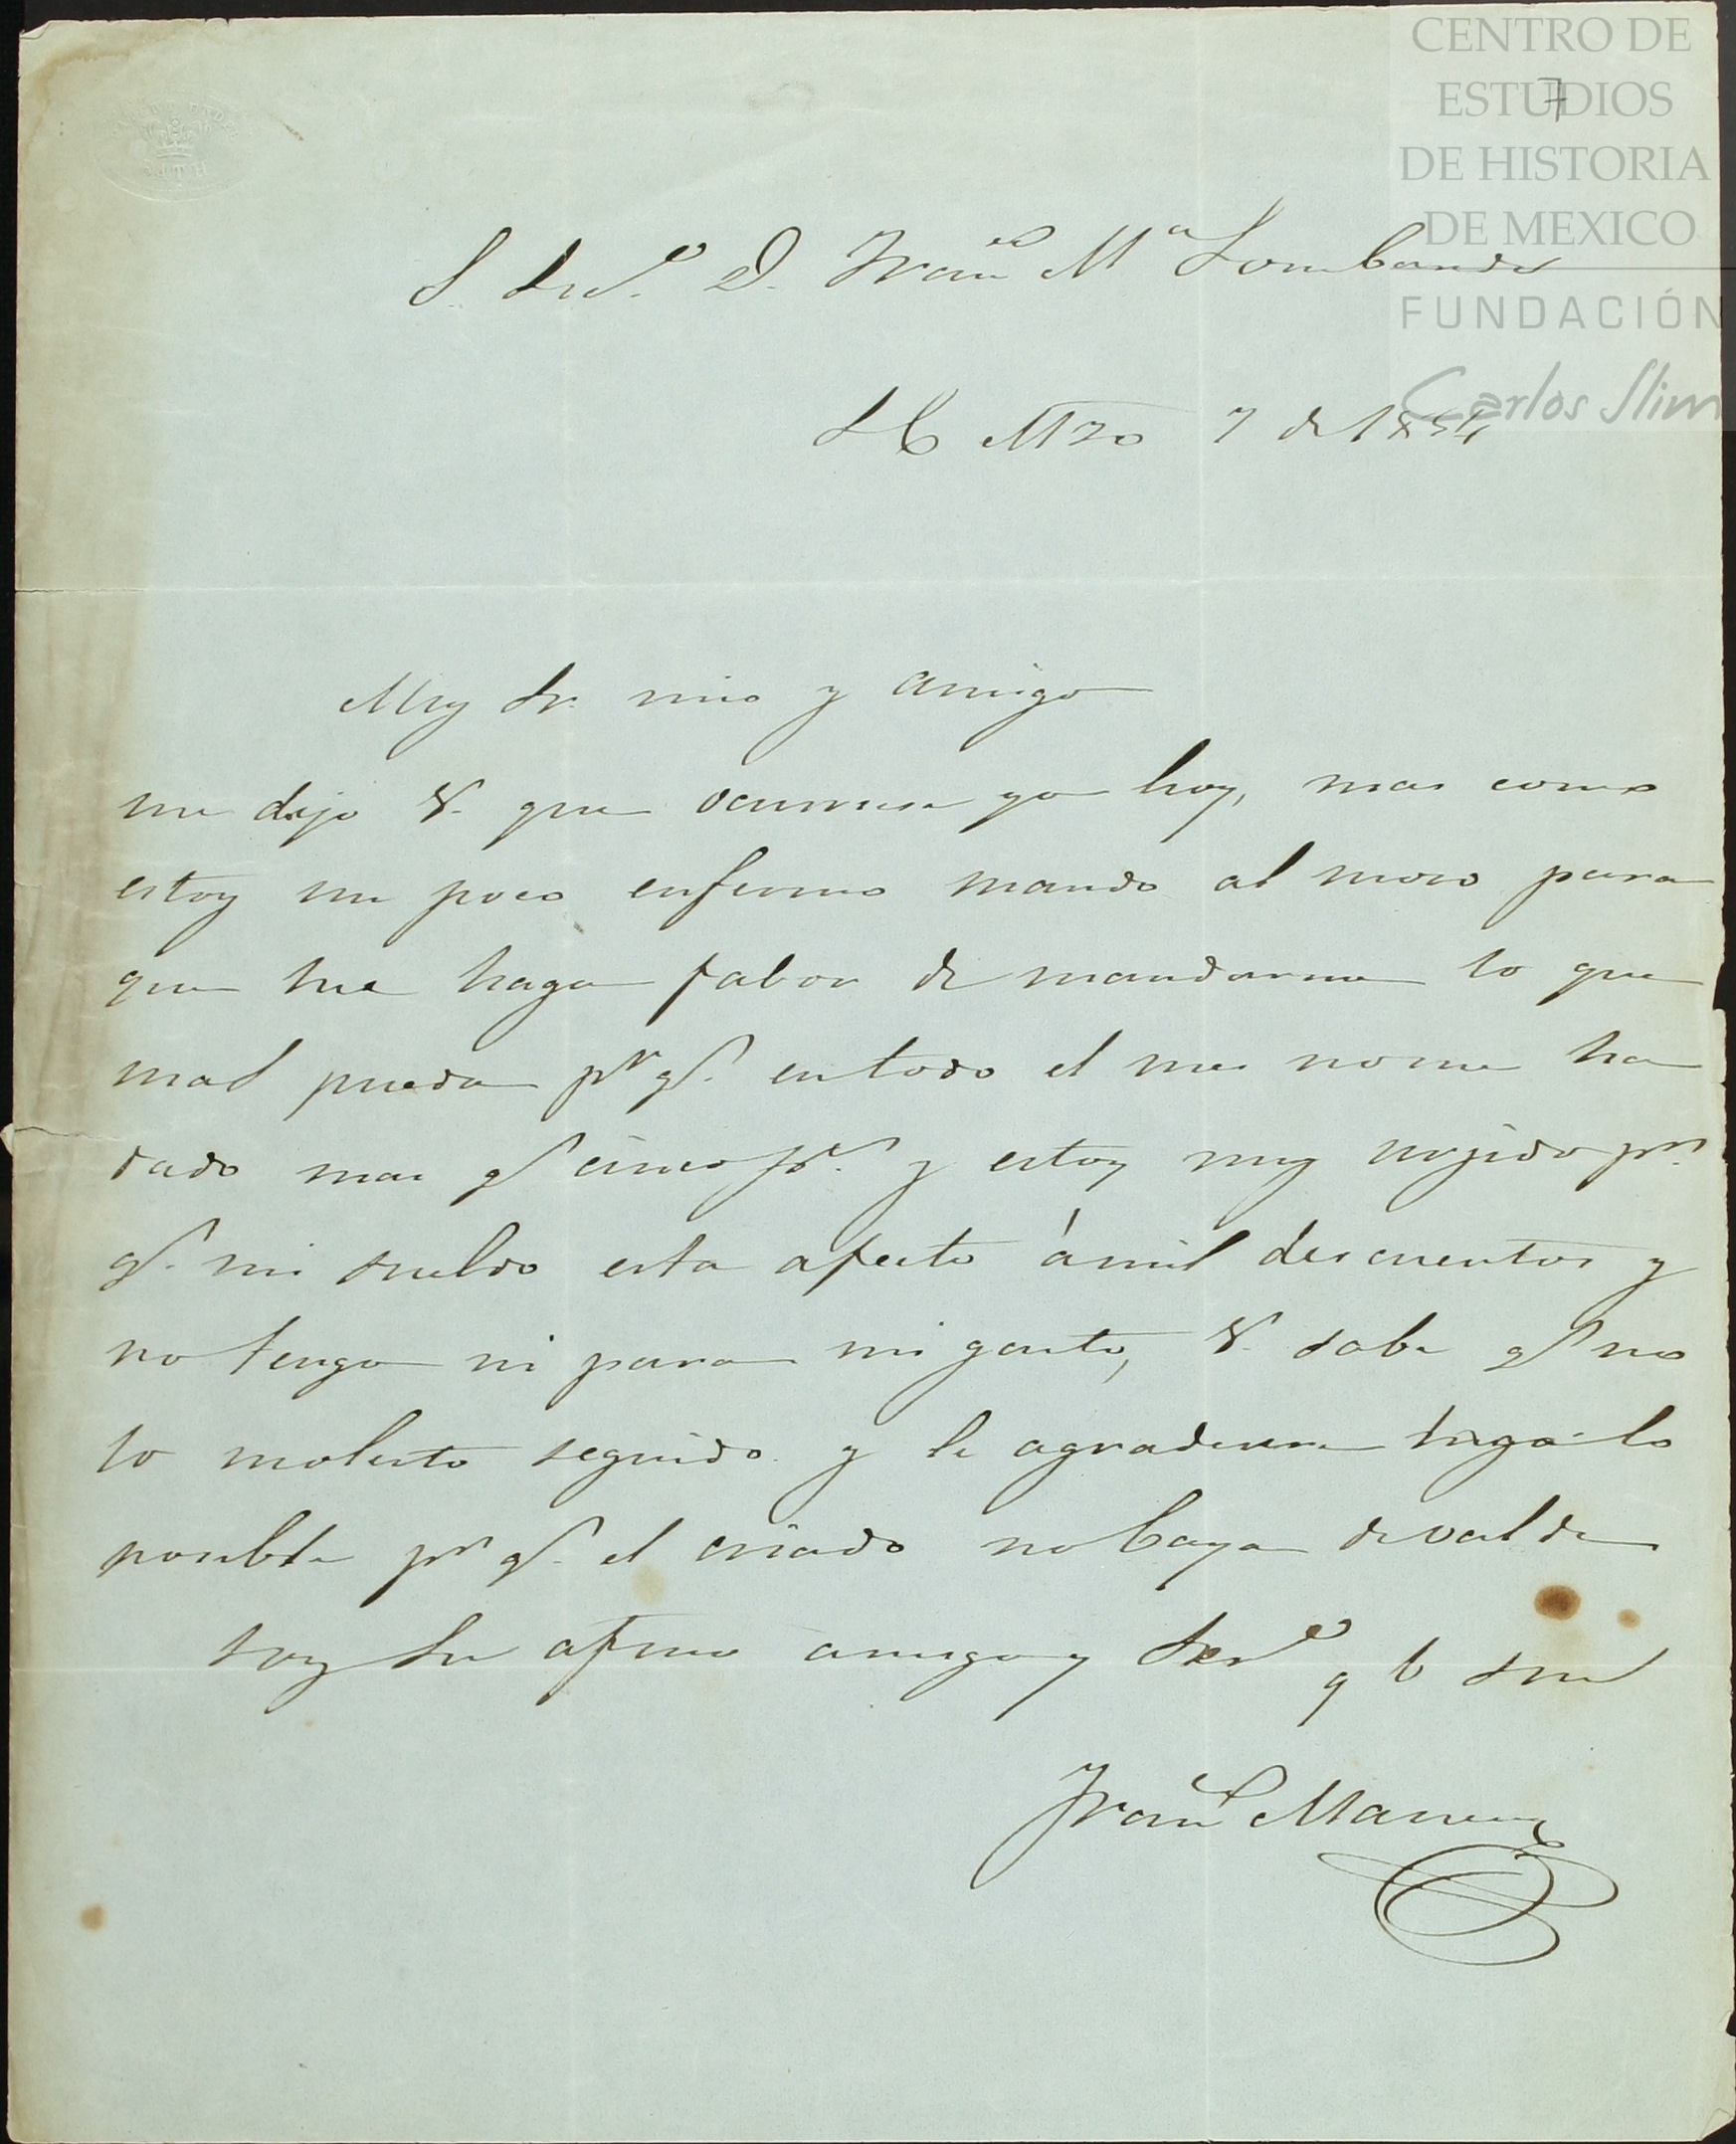 CENTRO DE
ESTUDIOS
DE HISTORIA
DE MEXICO
FUNDACIÓN
Carlos Slim
7
S. Lic.º D. Fran.co M.a Lombardo
Mzo 7 de 1854
Muy Sr. mio y amigo
me dijo V. que ocurriese yo hoy, mas como
estoy un poco enfermo mando al moso para
que me haga fabor de mandarme lo que
mas pueda pr. q.e en todo el mes no me ha
dado mas q.e cinco p.s y estoy muy urjido pr.
q.e mi sueldo esta afecto á mil descuentos y
no tengo ni para mi gasto, V. sabe q.e no
lo molesto seguido y le agradecere haga lo
posible pr. q.e el criado no baya devalde
soy su afmo amigo y Ser.º q b s m
Fran.co